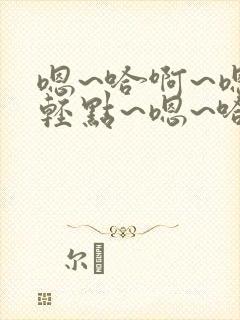 嗯~哈啊~嗯
輕點~嗯~哈
尔